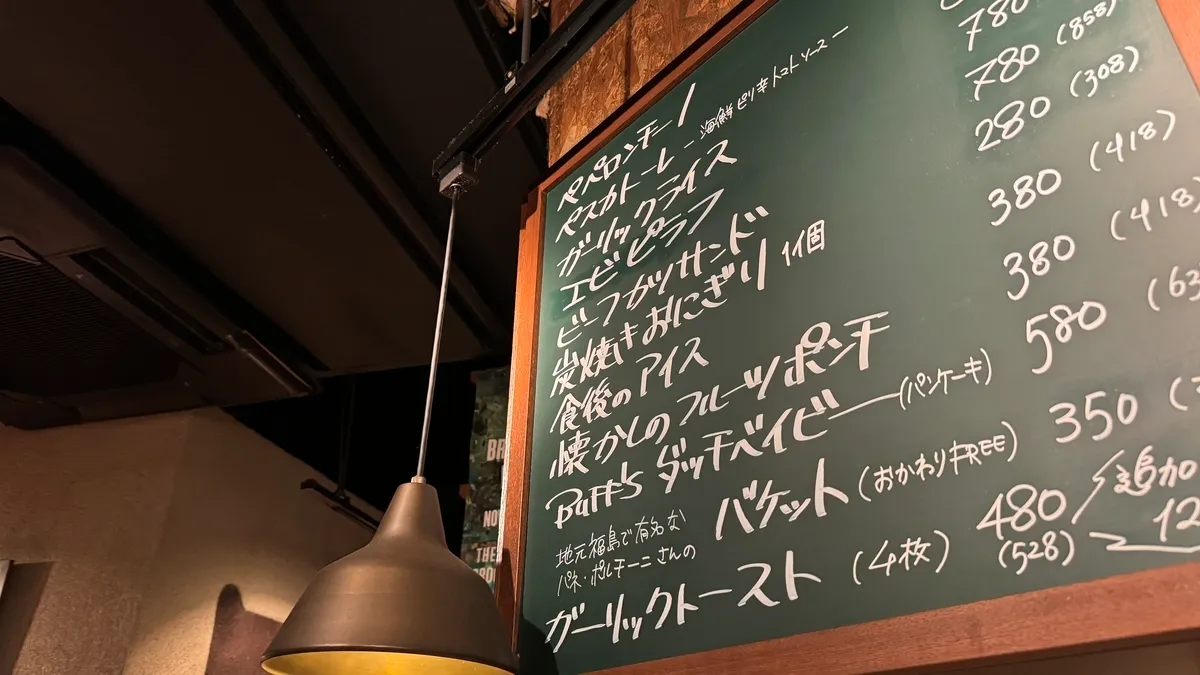 ペペロンチーノ
ペスカトーレ - 海鮮ピリ辛トマトソース -
ガーリックライス 780
エビピラフ 780 (858)
ビーフカツサンド
炭焼きおにぎり 1個 280 (308)
食後のアイス 380 (418)
懐かしのフルーツポンチ 380 (418)
Buff's ダッチベイビー (パンケーキ) 580
地元福島で有名な
パネ・ポルチーニさんの
バケット (おかわりFREE) 350
ガーリックトースト (4枚) 480 (528)
追加
BR
NO
THE